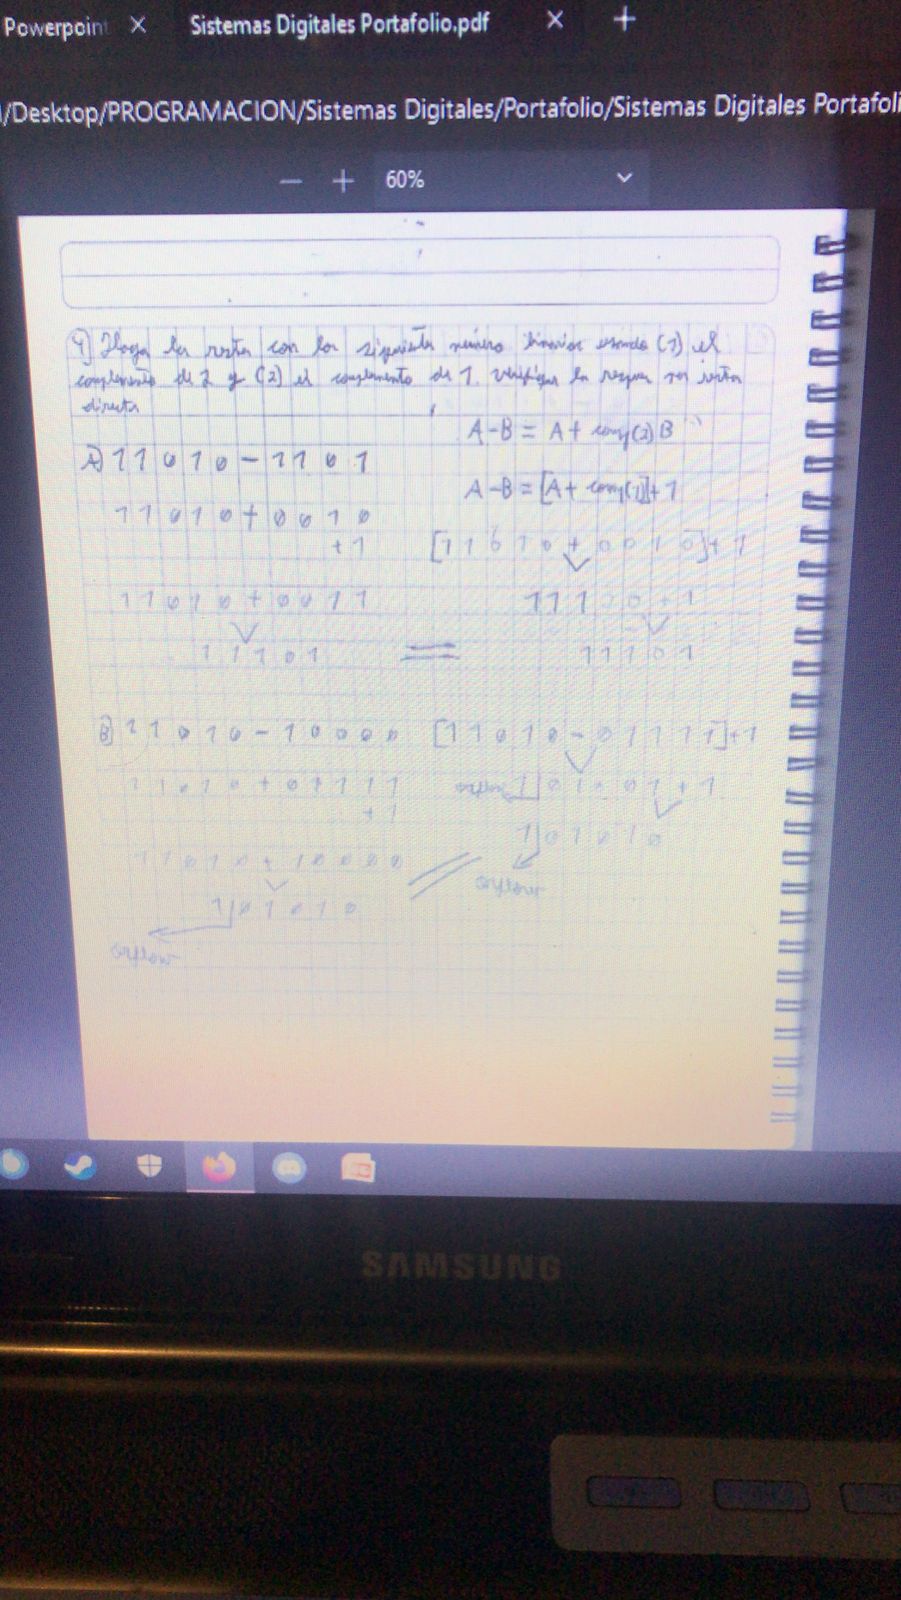 Powerpoin × Sistemas Digitales Portafolio.pdf × +
/Desktop/PROGRAMACION/Sistemas Digitales/Portafolio/Sistemas Digitales Portafoli
− + 60%
4) Haga la resta con los siguiente número binarios usando (1) el
complemento de 2 y (2) el complemento de 1. verifique la con resta
directa
A-B = A + comp(2)B
A) 11010 - 1101
A-B = [A + comp(1)] + 1
11010 + 0010
+1
[11010 + 0010] + 1
11010 + 0011
111 0 + 1
11101
=
11101
B) 11010 - 10000
[11010 - 01111] + 1
11010 + 01111
+1
1 01 01 + 1
1 01010
11010 + 10000
1 01010
SAMSUNG